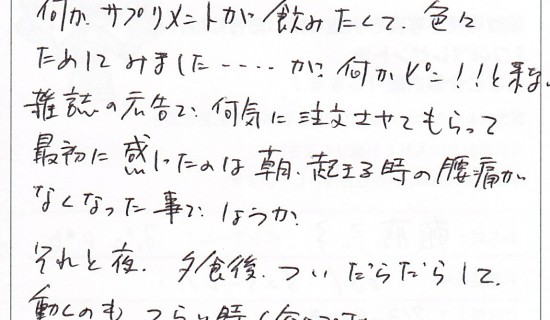 何か、サプリメントが飲みたくて、色々
ためしてみました‥‥が? 何かピン!!と来ない
雑誌の広告で、何気に注文させてもらって
最初に感じたのは朝、起きる時の腰痛が
なくなった事でしょうか。
それと夜、夕食後、ついだらだらして、
動くのも、つらい時